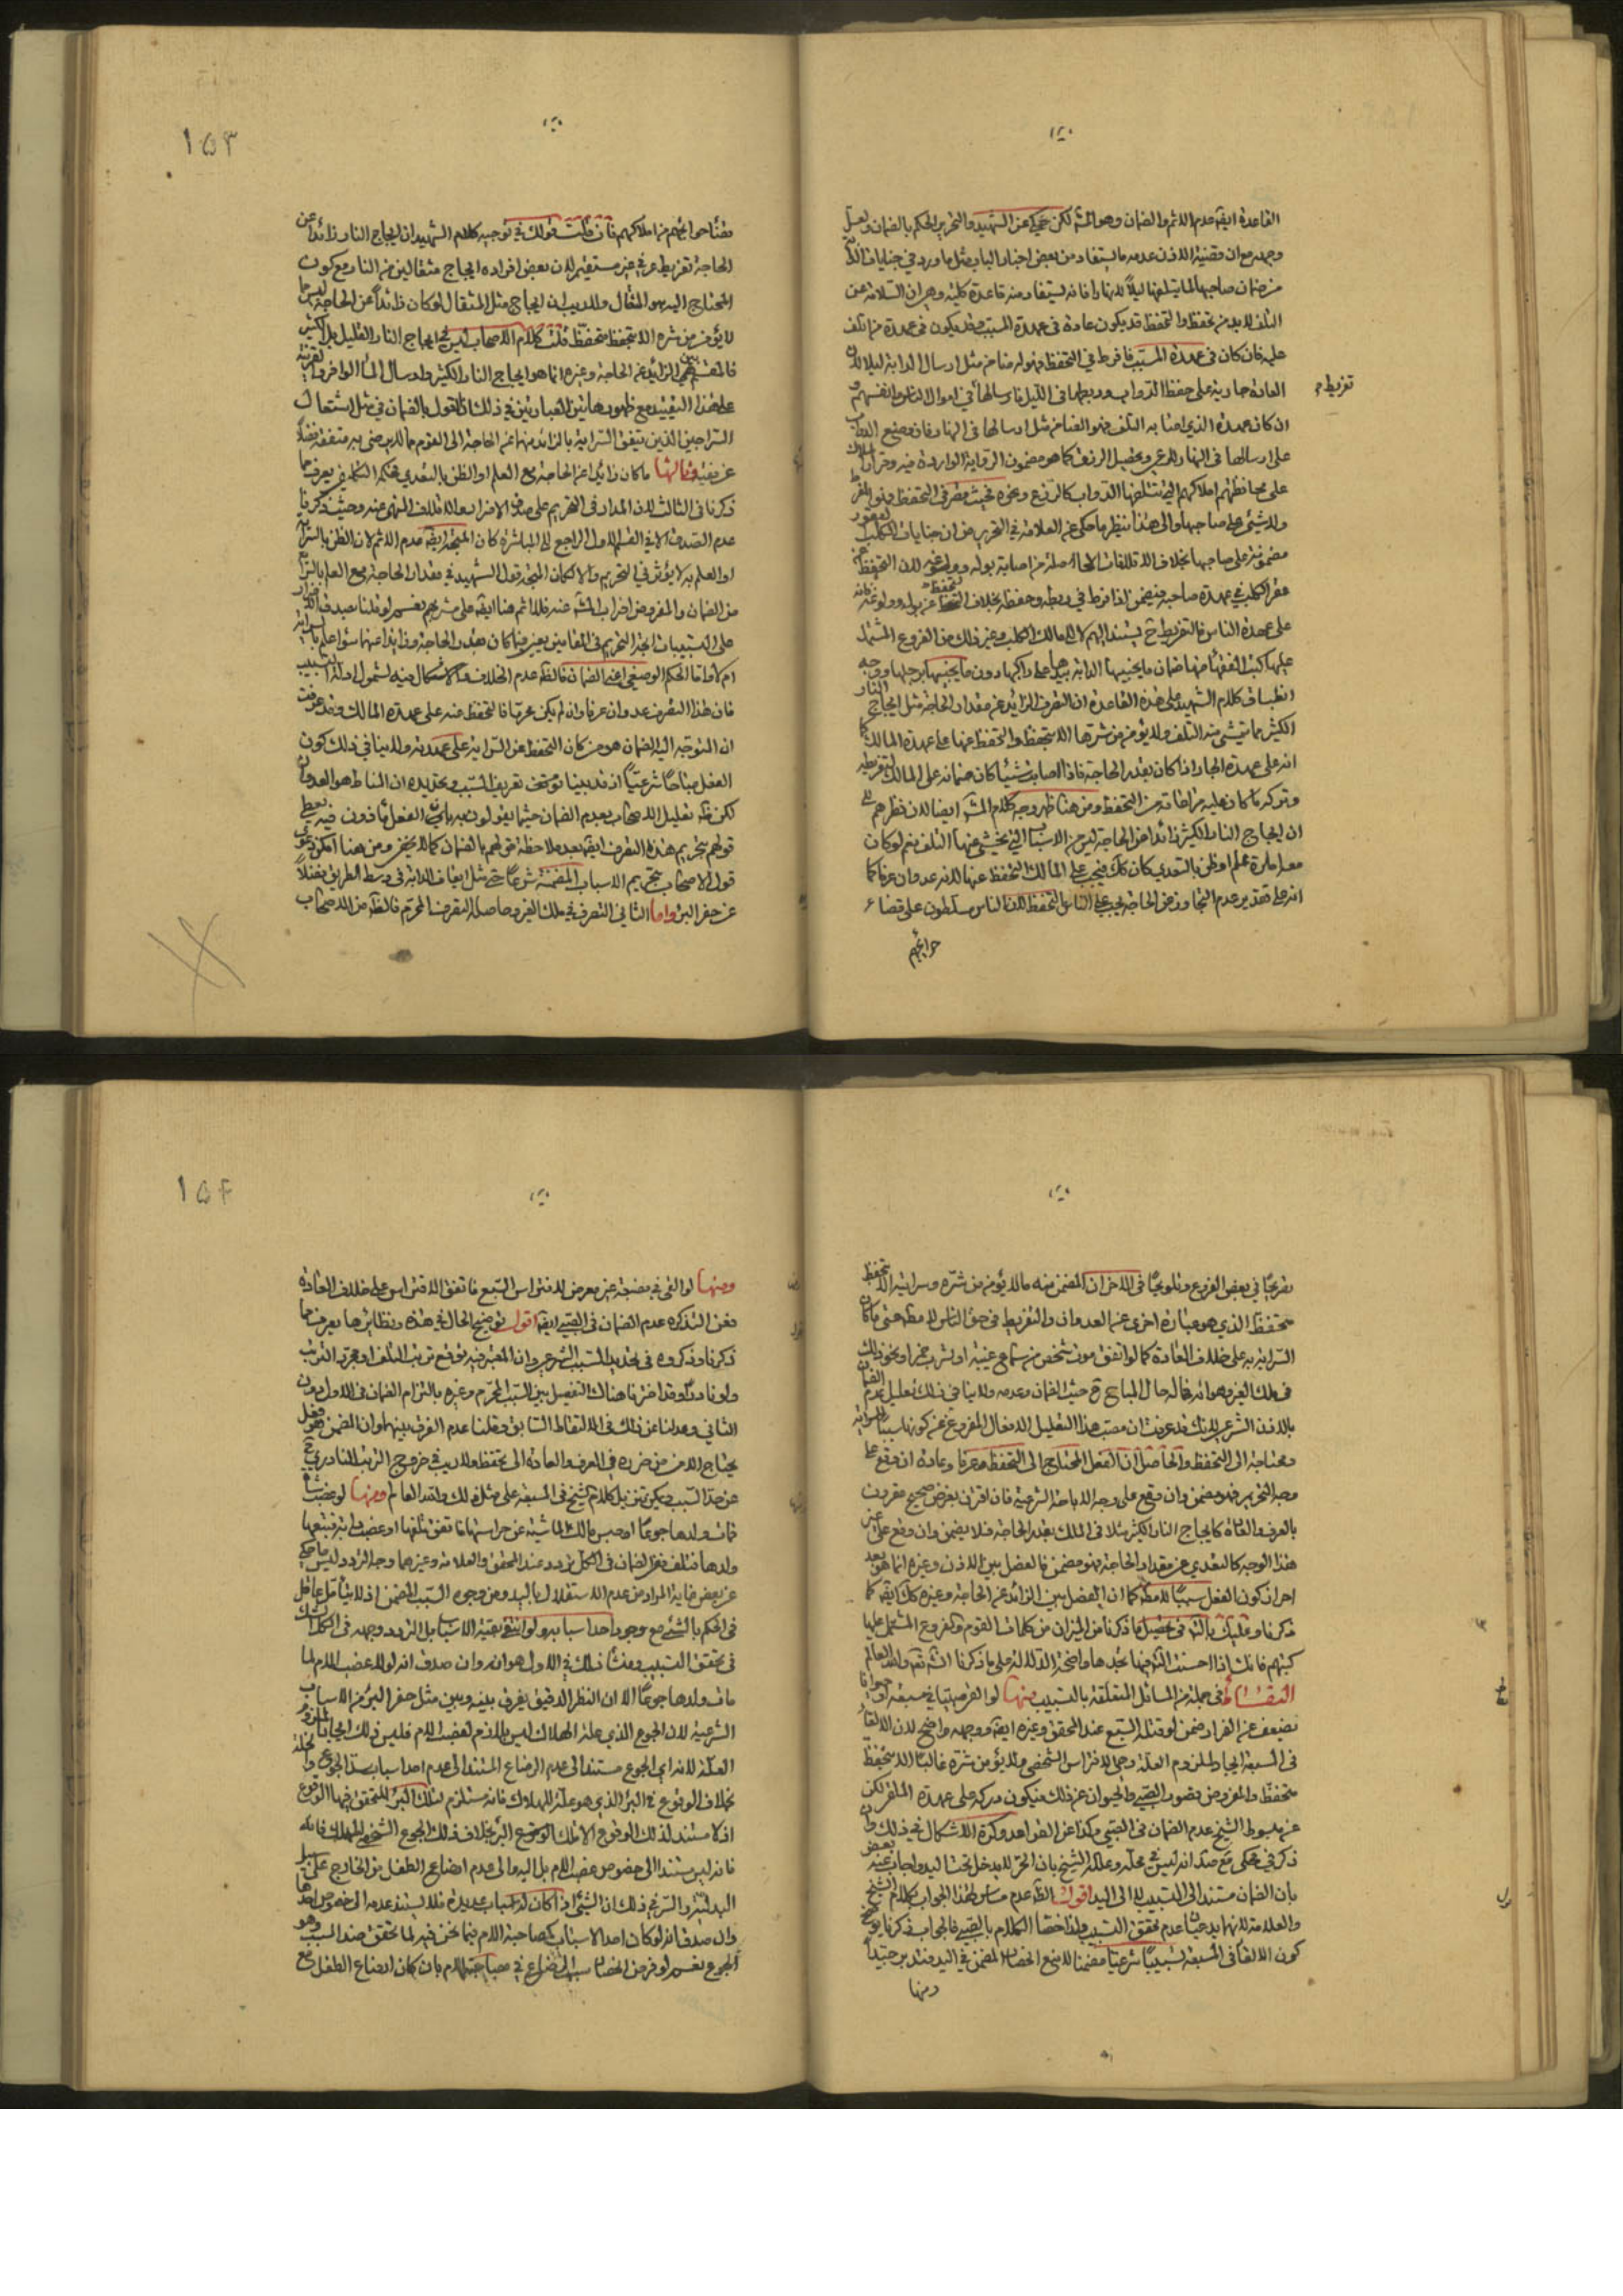 القاعدة ايضا عدم الاثم والضمان وهو المشهور لكن حكي عن الشهيد والتحرير الحكم بالضمان ولعل
وجهه مع ان قضية الاذن عدمه ما يستفاد من بعض اخبار الباب مثل ما ورد في جنايات الدابة
من ضمان صاحبها لما يتلفها ليلاً لا نهارا فانه يستفاد منه قاعدة كلية وهي ان السلامة عن
التلف لا بد من تحفظ والتحفظ قد يكون عادة في عهدة المسبب وقد يكون في عهدة من اتلف
عليه فان كان في عهدة المسبب فافرط في التحفظ فهو له ضامن مثل ارسال الدابة ليلا لان
العادة جارية على حفظ الدواب وربطها في الليل فارسالها في اموال الناس وانفسهم
تفريط
ان كان عهدة الذي اصابه التلف فهو الضامن مثل ارسالها في النهار فان وضع الدواب
على ارسالها في النهار للرعي وتحصيل الرزق كما هو مضمون الرواية الواردة فيه وقرار
على محافظتهم املاكهم التي تتلفها الدواب كالزرع ونحوه بحيث مفرط في التحفظ فهو
ولا شيء على صاحبها والى هذا ينظر ما حكي عن العلامة في التحرير من ان جنايات الكلب العقور
مضمونة على صاحبها بخلاف الاتلافات الحاصلة من اصابة بوله وولوغه لان التحفظ عن
عقر الكلب في عهدة صاحبه فيضمن اذا فرط في ربطه وحفظه بخلاف التحفظ عن بوله وولوغه فانه
على عهدة الناس فالتفريط ح يستند اليهم لا الى مالك الكلب وغير ذلك من الفروع المشتمل
عليها كتب الفقهاء منها ضمان ما يجنيها الدابة بيدها على راكبها دون ما يجنيها برجلها ووجه
انطباق كلام الشهيد على هذه القاعدة ان التصرف الزائد عن مقدار الحاجة مثل ايجاج النار
الكثير مما يتمشى منه التلف ولا يؤمن من شرها الا بتحفظ والتحفظ عنها على عهدة المالك كما
انه على عهدة الجار اذا كان بقدر الحاجة فاذا اصابت شيئا كان ضمانه على المالك لتفريطه
وتركه ما كان عليه من التحفظ ومن هنا ظهر وجه كلام المشهور ايضا لان نظرهم الى
ان ايجاج النار الكثير زائدا عن الحاجة ليس من الاسباب التي يخشى عنها التلف نعم لو كان
مع امارة علم او ظن بالتعدي كان كذلك فيجب على المالك التحفظ عنها لانه عدوان عرفا كما
انه على تقدير عدم التجاوز عن الحاجة يجب على الناس التحفظ لان الناس مسلطون على قضاء
حوائجهم
١٥٣
قضاء حوائجهم من املاكهم فان قلت قولك في توجيه كلام الشهيد ان ايجاج النار زائدا عن
الحاجة تفريط عرفي غير مستقيم لان بعض افراده ايجاج مثقالين من النار مع كون
المحتاج اليه هو المثقال ولا ريب ان ايجاج مثل المثقال لو كان زائداً عن الحاجة ليس مما
لا يؤمن من شره الا بتحفظ متحفظ قلت كلام الاصحاب ليس في ايجاج النار القليل بل الكثير
فالتقسيم الى الزائد عن الحاجة وغيره انما هو ايجاج النار الكثير وارسال الماء الوافر والقرينة
على هذا التقييد مع ظهور هاتين العبارتين في ذلك ان القول بالضمان في مثل اشتعال
السراجين الذين يتفق السراية بالزائد منهما عن الحاجة الى القوم مما لا يرضى به متفقه فضلا
عن فقيه وثالثها ما كان زائدا عن الحاجة مع العلم او الظن بالتعدي فحكم التكليفي يعرف مما
ذكرنا في الثالث لان المدار في التحريم على صدق الاضرار والاتلاف المنهي عنه وحيث ذكرنا
عدم الصدق الا في القسم الاول الراجع الى المباشرة كان المتجه ايضا عدم الاثم لان الظن بالسراية
او العلم به لا يؤثر في التحريم والا لكان المتجه قول الشهيد في مقدار الحاجة مع العلم بالسراية
من الضمان والمفروض اضراب المشهور عنه فلا اثم هنا ايضا على مشربهم نعم لو قلنا بصدق الاضرار
على التسبيبات اتجه التحريم في المقامين يعني فيما كان بقدر الحاجة وزائدا عنها سواء علم بالسراية
ام لا واما الحكم الوضعي اعني الضمان فالظاهر عدم الخلاف والاشكال فيه لشمول ادلة التسبيب
فان هذا التصرف عدوان عرفا وان لم يكن محرما فالتحفظ منه على عهدة المالك وقد عرفت
ان المتوجه اليه الضمان هو من كان التحفظ عن السراية على عهدته ولا ينافي ذلك كون
الفعل مباحا شرعيا اذ قد بينا في تعريف السبب وتحديده ان المناط هو العدوان
لكن ظاهر تعليل الاصحاب بعدم الضمان حيثما يقولون به بان الفعل ماذون فيه يعطي
قولهم بتحريم هذا التصرف ايضا بعد ملاحظة قولهم بالضمان كما لا يخفى ومن هنا امكن دعوى
قول الاصحاب بتحريم الاسباب المضمنة شرعا حتى مثل ايقاف الدابة في وسط الطريق فضلاً
عن حفر البئر واما الثاني التصرف في ملك الغير وحاصله التصرف المحرم فالظاهر من الاصحاب
تصريحا في بعض الفروع وتلويحا في الاخر ان المضمن منه ما لا يؤمن من شره وسرايته الا بتحفظ
متحفظ الذي هو عبارة اخرى عن العدوان والتفريط في حق الناس لا مطلقا حتى ما كان
السراية به على خلاف العادة كما لو اتفق موت شخص من سماع غيبة او شرب خمر او نحو ذلك
في ملك الغير وهوائه فحاله حال المباح ح حيث الضمان وعدمه ولا ينافي ذلك تعليل عدم الضمان
بالاذن الشرعي لانك قد عرفت ان مصب هذا التعليل الافعال المفروغ عن كونها سببا للسراية
ومحتاجة الى التحفظ والحاصل ان الفعل المحتاج الى التحفظ عرفا وعادة ان وقع على
وجه التحريم فهو مضمن وان وقع على وجه الاباحة الشرعية فان اقترن بغرض صحيح مقرون
بالعرف والعادة كايجاج النار الكثير مثلا في الملك بقدر الحاجة فلا يضمن وان وقع على غير
هذا الوجه كالتعدي عن مقدار الحاجة فهو مضمن فالفصل بين الاذن وغيره انما هو بعد
احراز كون الفعل سببا لا مطلقا كما ان الفصل بين الزائد عن الحاجة وغيره كذلك ايضا كما
ذكرنا وعليك بالتامل في تحصيل ما ذكرنا من الميزان من كلمات القوم والفروع المشتمل عليها
كتبهم فانك اذا احسنت التامل فيها تجدها واضحة الدلالة على ما ذكرنا انشاء الله تعالى والله العالم
التقاط في جملة من المسائل المتعلقة بالتسبيب منها لو القى صبيا في مسبعة او حيوانا
يضعف عن الفرار ضمن لو قتله السبع عند المحقق وغيره ايضا ووجهه واضح لان الالقاء
في المسبعة ايجاد لملزوم العلة وهي الافتراس الشخصي ولا يؤمن شره غالبا الا بتحفظ
متحفظ والمفروض قصور الصبي والحيوان عن ذلك فيكون دركه على عهدة الملقي لكن
عن مبسوط الشيخ عدم الضمان في الصبي وكذا عن القواعد وكرة الاشكال في ذلك وان
ذكر في محكي مع صد انه ليس في محله وعلله الشيخ بان الحر لا يدخل تحت اليد واجاب عنه بعض
بان الضمان مستند الى التسبيب لا الى اليد اقول الظاهر عدم مساس لهذا الجواب بكلام الشيخ
والعلامة لانهما يدعيان عدم تحقق التسبيب ولذا خصا الكلام بالصبي فالجواب ذكر ما يوضح
كون الالقاء في المسبعة تسبيبا شرعيا مضمنا لا منع انحصار المضمن في اليد فتدبر جيداً
ومنها
١٥٤
ومنها لو القى في مضيعة غير معرض لافتراس السبع فاتفق الافتراس على خلاف العادة
فعن التذكره عدم الضمان في الصبي ايضا اقول توضيح الحال في هذه ونظايرها يعرف مما
ذكرنا وذكروه في تحديد السبب الشرعي وان المعتبر فيه توقع ترتب التلف او مجرد الترتب
ولو نادرا وقد اخترنا هناك التفصيل بين السبب المحرم وغيره بالتزام الضمان في الاول دون
الثاني وعدلنا عن ذلك في الالتقاط السابق وقلنا عدم الفرق بينهما وان المضمن هو فعل
يحتاج الامن من ضرره في العرف والعادة الى تحفظ ولا ريب في خروج الترتب النادري ح
عن حد السبب ويمكن تنزيل كلام الشيخ في المسبعة على مثل ذلك والله العالم ومنها لو غصب شاة
فمات ولدها جوعا او حبس مالك الماشية عن حراستها فاتفق تلفها او غصب دابة فتبعها
ولدها فتلف ففي الضمان في الكل تردد عند المحقق والعلامة وغيرهما وجه التردد ليس ما حكي
عن بعض فانه المراد من عدم الاستقلال باليد ومن وجود السبب المضمن اذ لا يتأمل عاقل
في الحكم بالشيء مع وجود احد اسبابه ولو انتفى بقية الاسباب بل التردد وجهه في الكل الشك
في تحقق التسبيب ومنشأ ذلك في الاول هو انه وان صدق انه لولا غصب الام لما
مات ولدها جوعا الا ان النظر الدقيق يفرق بينه وبين مثل حفر البئر من الاسباب
الشرعية لان الجوع الذي علة الهلاك ليس بلازم لغصب الام فليس ذلك ايجادا لملزوم
العلة لانه اي الجوع مستند الى عدم الرضاع المستند الى عدم احد اسباب سد الجوع
بخلاف الوقوع في البئر الذي هو علة للهلاك فانه مستلزم لتلك البئر المتحقق فيها الوقوع
اذ لا مستند لذلك الوقوع الا تلك البئر بخلاف ذلك الجوع الشخصي المهلك فانه
فانه ليس مستندا الى خصوص غصب الام بل اليه والى عدم ارضاع الطفل من الخارج على سبيل
البدلية والسر في ذلك ان الشيء اذا كان له اسباب عديدة فلا يستند عدمه الى خصوص احدها
وان صدق انه لو كان احد الاسباب كصاحبة الام فيما نحن فيه لما تحقق ضد المسبب وهو
الجوع نعم لو فرض انحصار سبب الرضاع في مصاحبة الام بان كان ارضاع الطفل مع